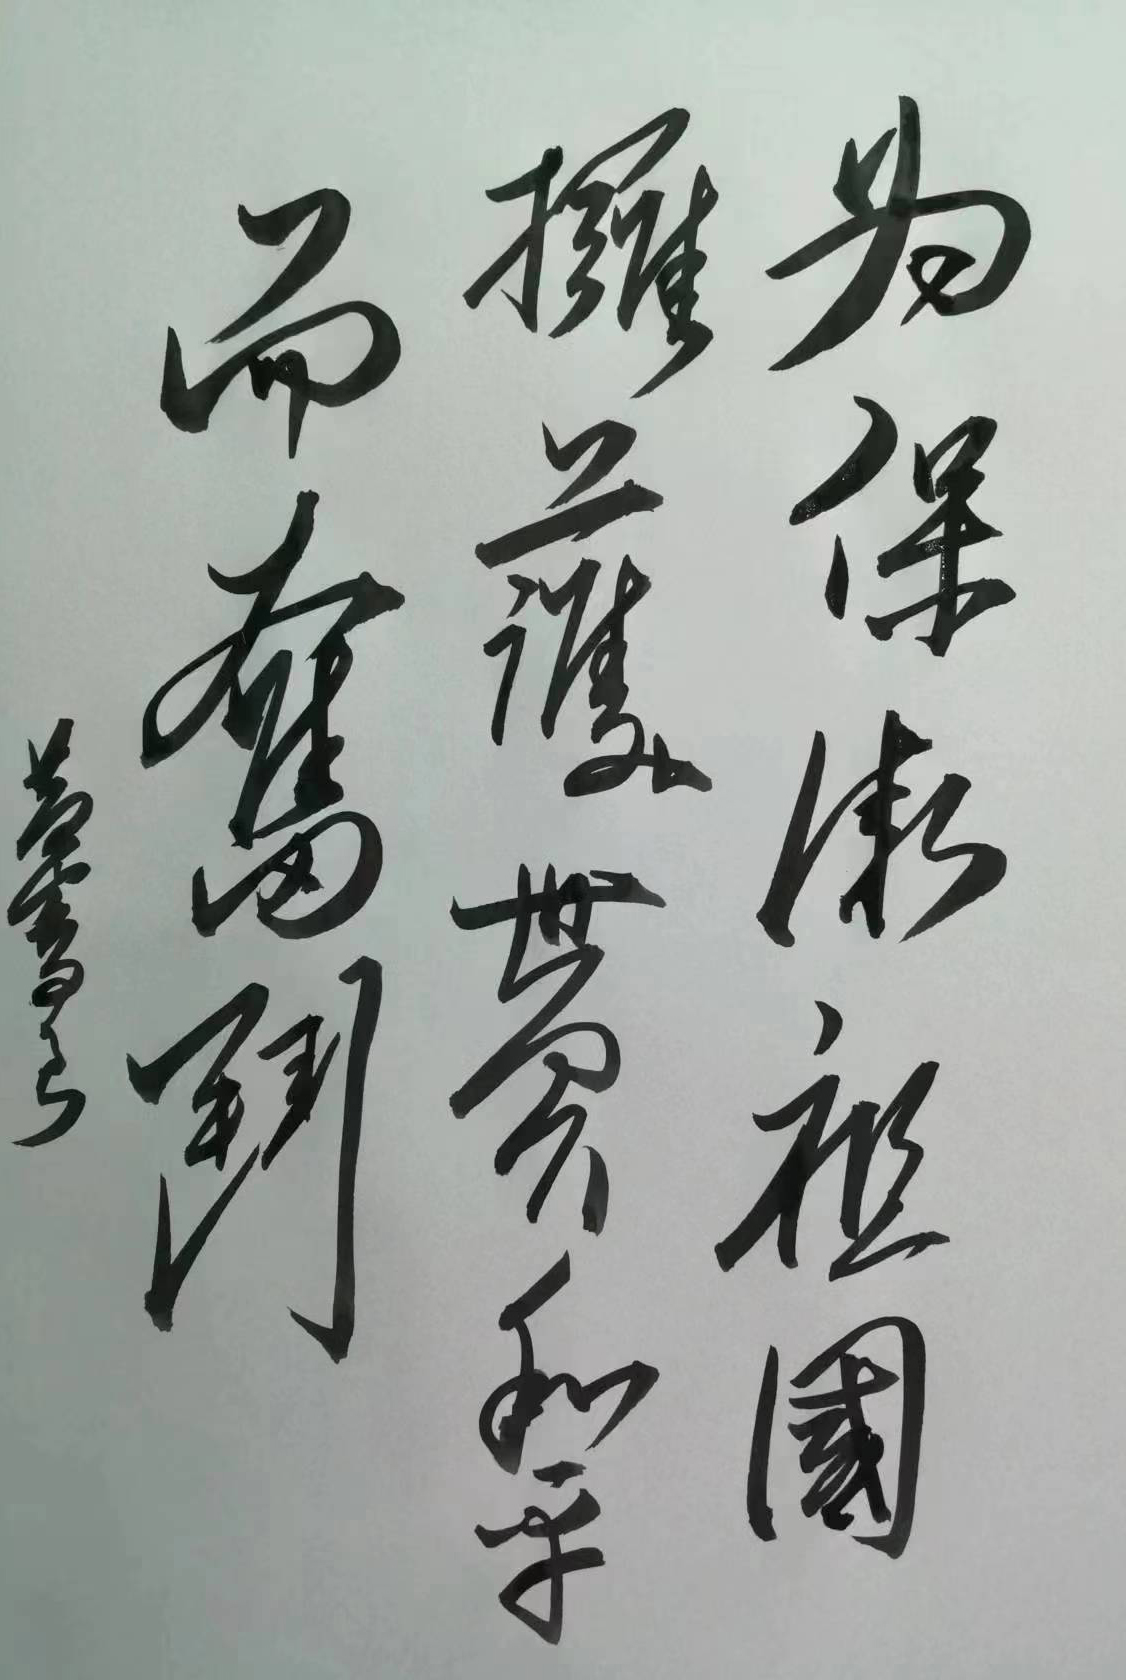 为保衛祖國
擁護世界和平
而奮鬥